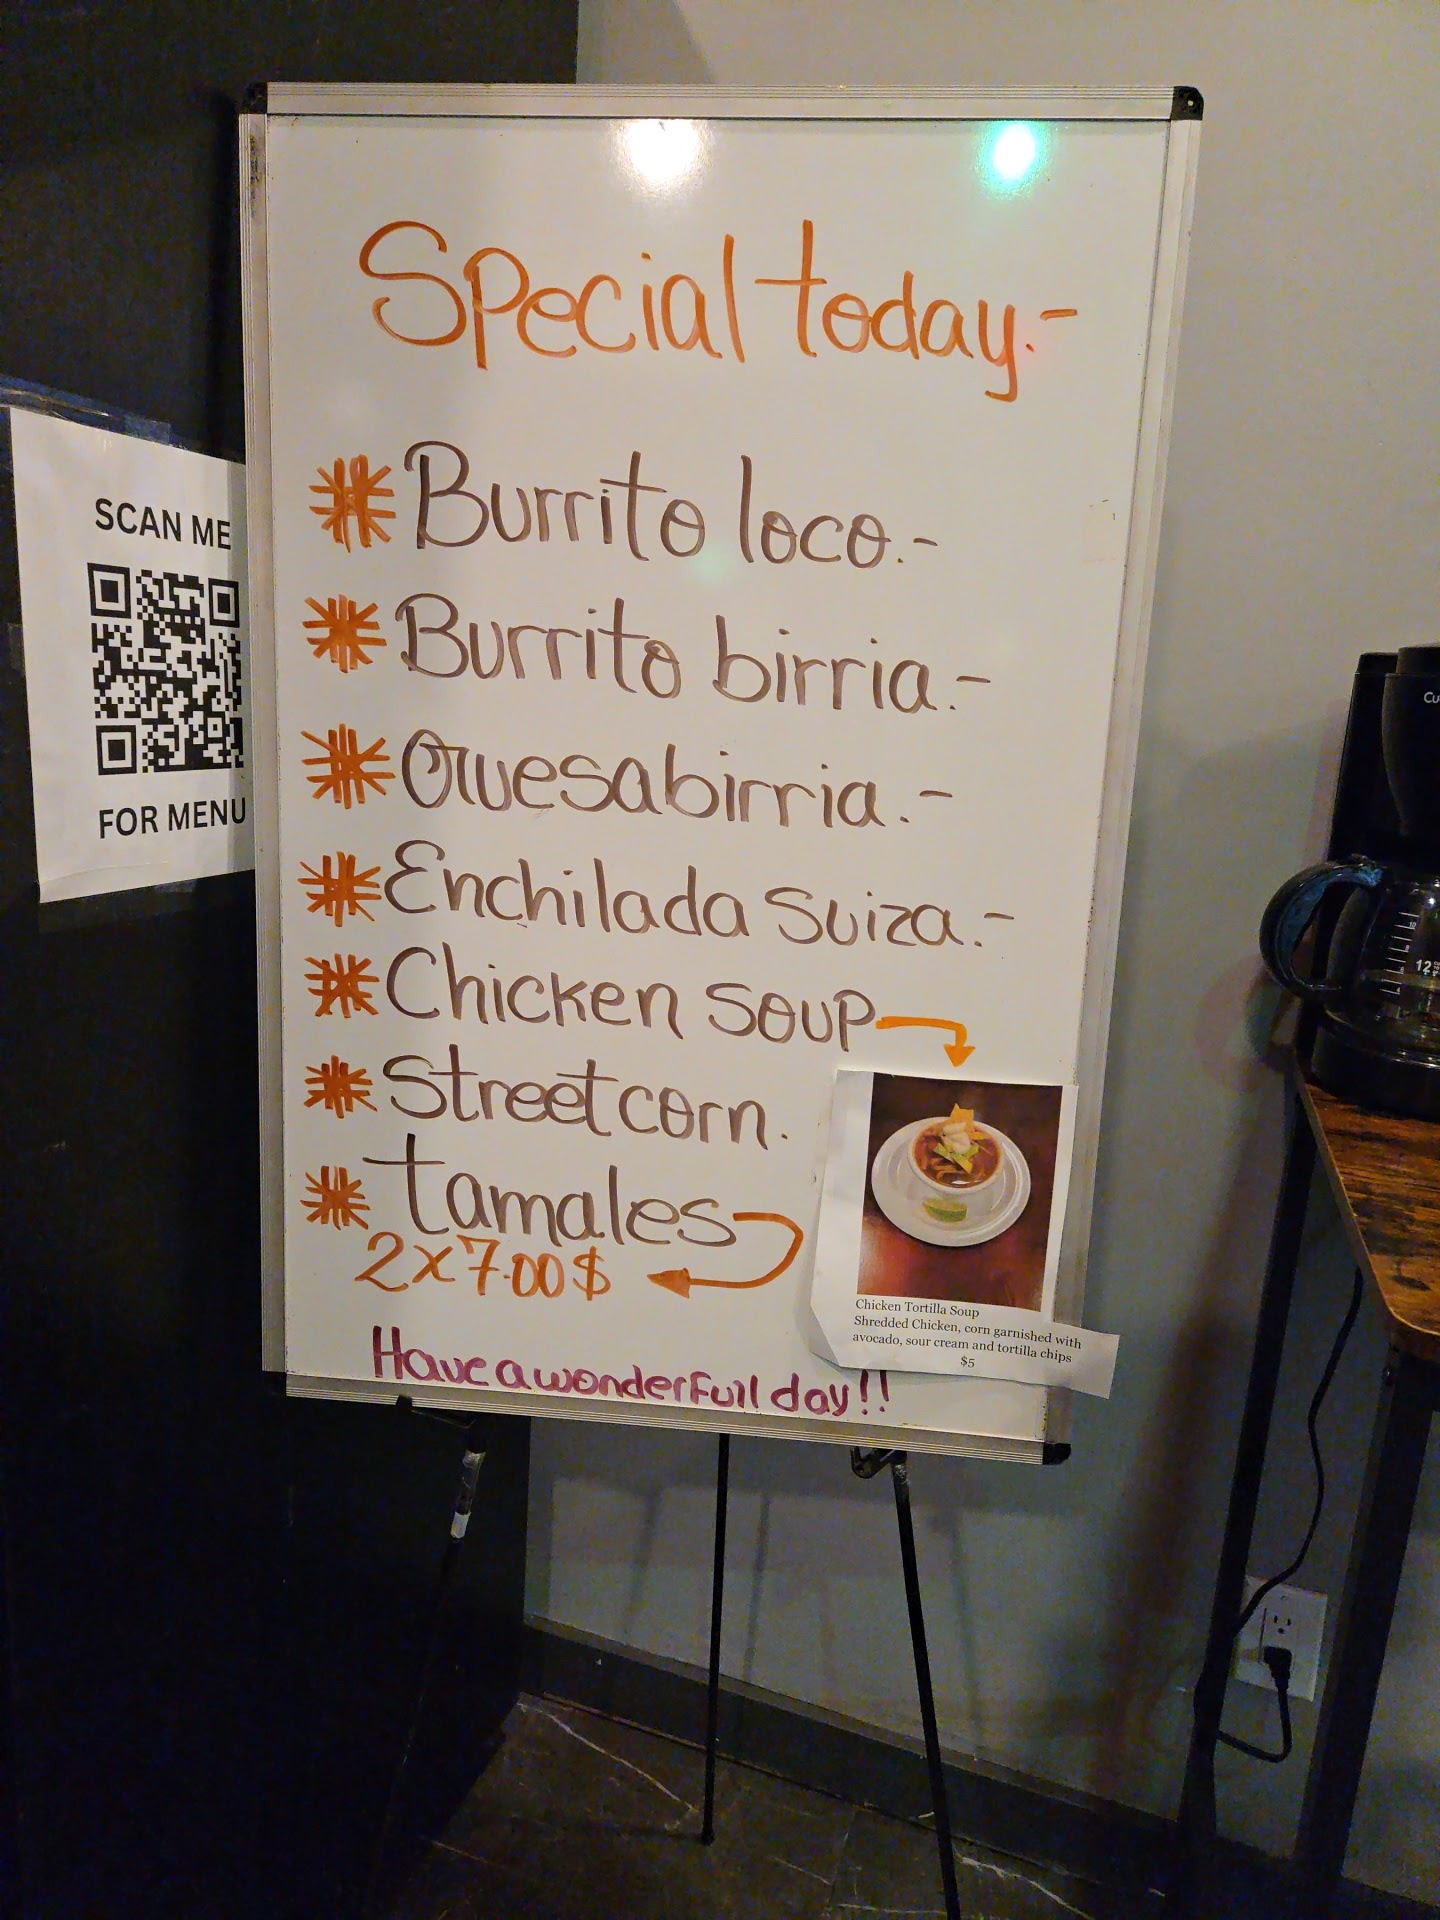 Special today.-
Burrito loco.-
Burrito birria.-
Quesabirria.-
Enchilada suiza.-
Chicken soup
Street corn.
tamales
2x7.00$
Have a wonderfull day!!
Chicken Tortilla Soup
Shredded Chicken, corn garnished with
avocado, sour cream and tortilla chips
$5
SCAN ME
FOR MENU
12